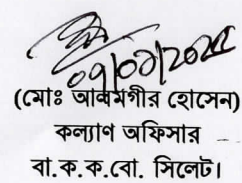 ০৭/০১/2025
(মোঃ আলমগীর হোসেন)
কল্যাণ অফিসার
বা.ক.ক.বো. সিলেট।